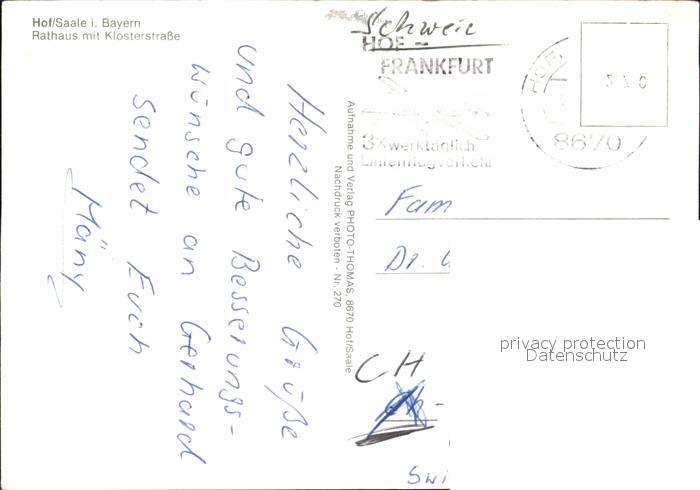 Hof/Saale i. Bayern
Rathaus mit Klosterstraße
Herzliche Grüße
und gute Besserungs-
wünsche an Gerhard
sendet Euch
Mäny
Aufnahme und Verlag PHOTO-THOMAS, 8670 Hof/Saale
Nachdruck verboten - Nr. 270
Schweiz
HOF -
FRANKFURT
3x werktäglich
Linienflugverkehr
HOF,
8670
Fam
Dr.
CH
Swi
privacy protection
Datenschutz